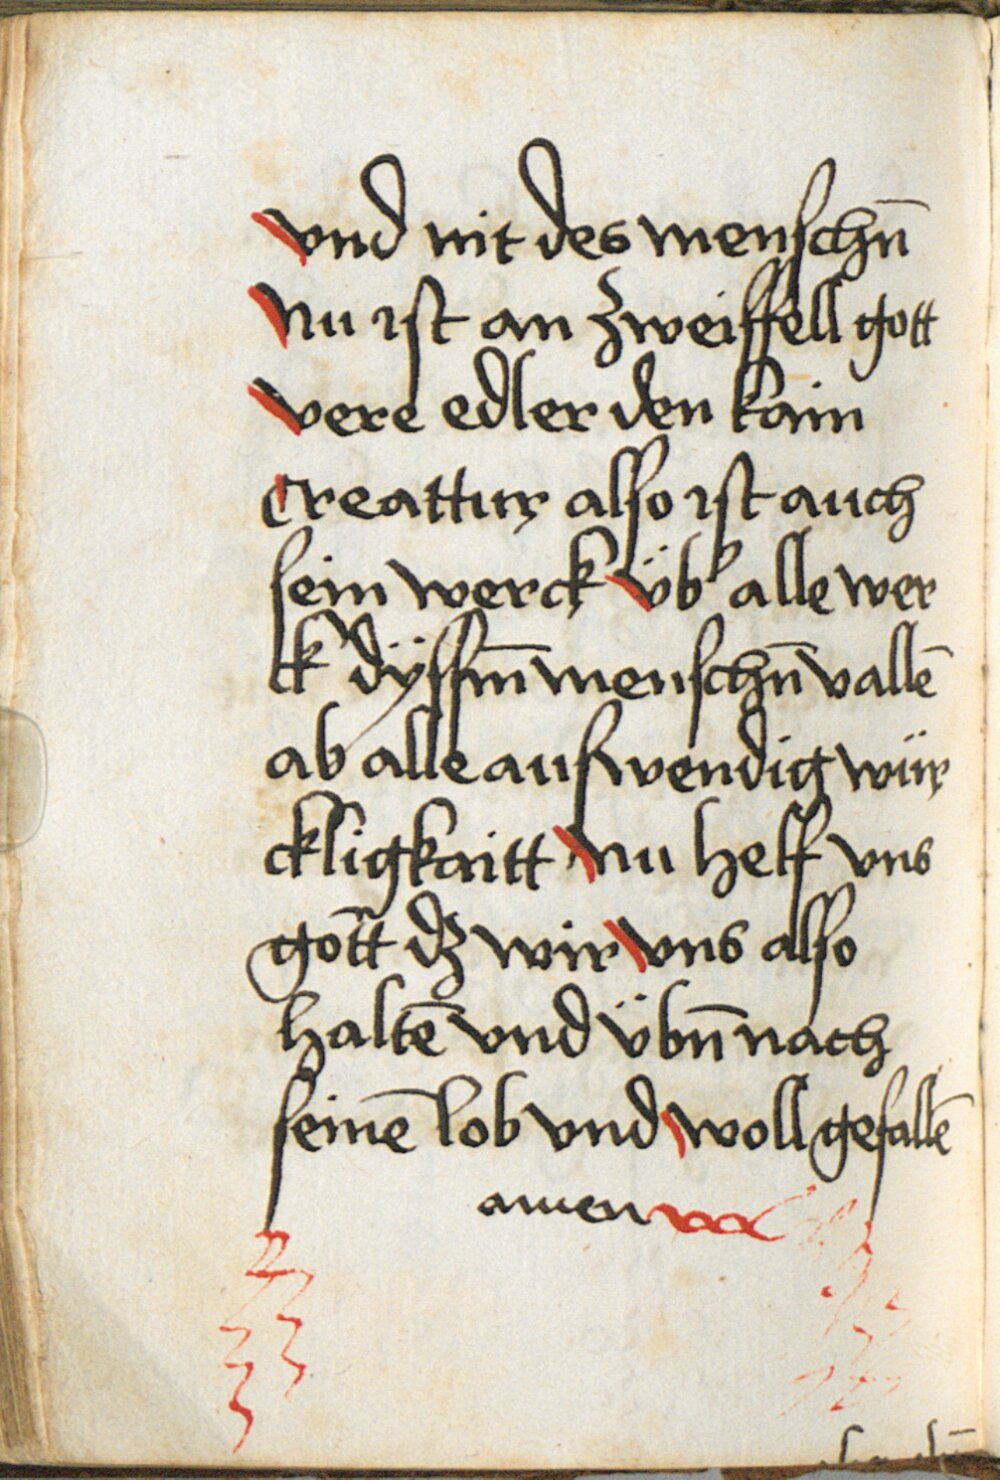 vnd nit des menschn̄
Nu ist an zweiffell gott
vere edler den kain
creattur also ist auch
sein werck üb' alle wer
ck dÿssm̄ menschn̄ vallē
ab alle auswendig wür
ckligkaitt Nu helf vns
got̄t dz wir vns also
haltē vnd übn̄ nach
seinē lob vnd woll gefallē
amen